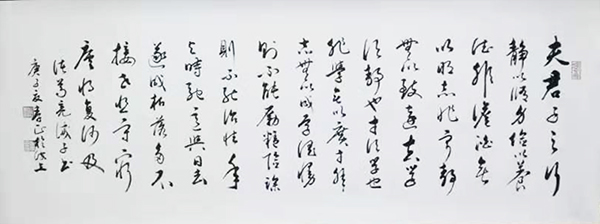 夫君子之行
静以修身俭以养
德非澹泊无
以明志非宁静
无以致远夫学
须静也才须学也
非学无以广才非
志无以成学慆慢
则不能励精险躁
则不能治性年
与时驰意与日去
遂成枯落多不
接世悲守穷
庐将复何及
诸葛亮诫子书
庚子夏春正於沪上